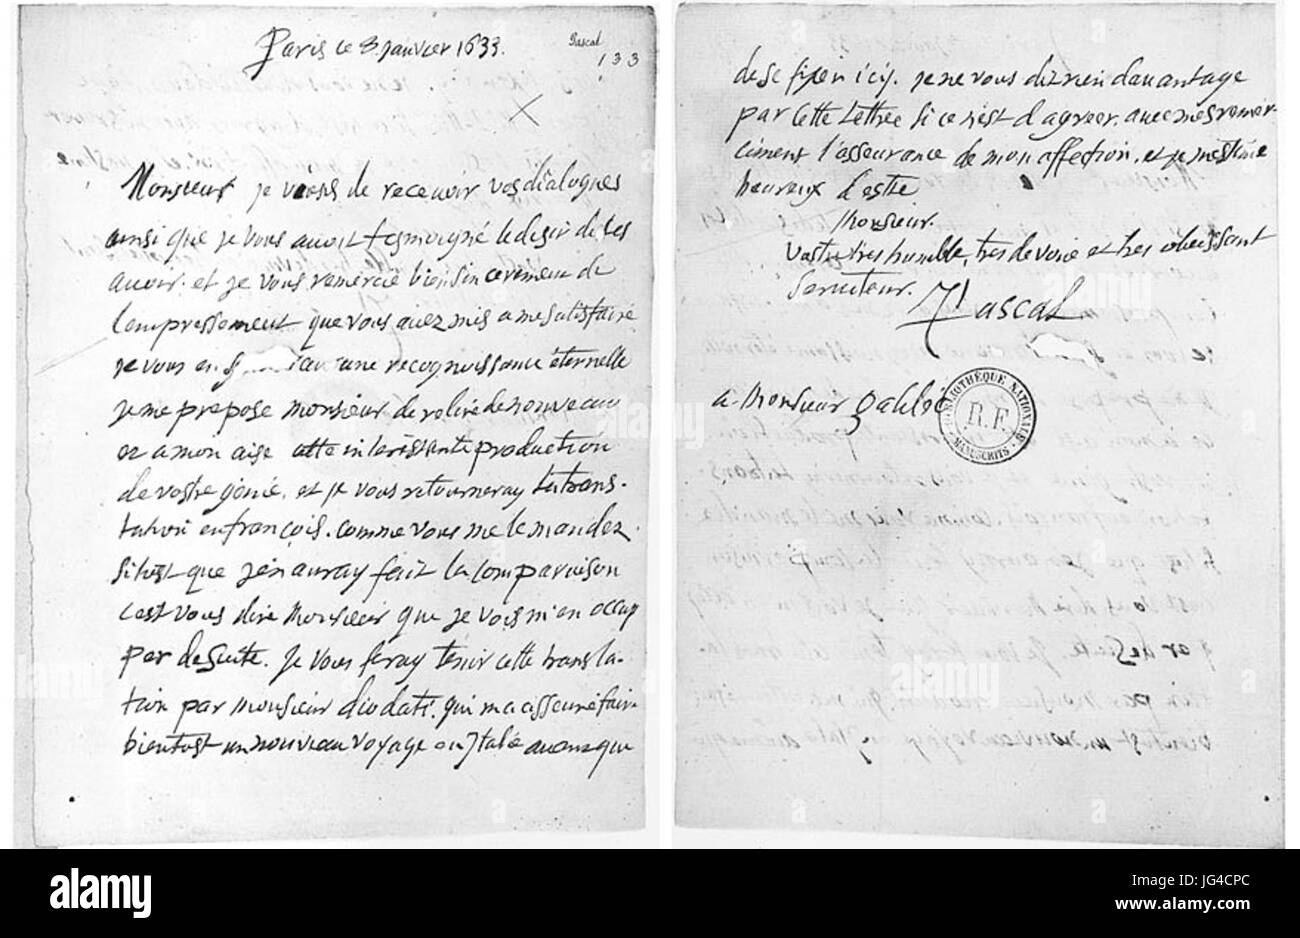 Paris ce 8 janvier 1633.
Pascal
133
Monsieur je viens de recevoir vos dialogues
ainsi que je vous avoit tesmoigné le desir de les
avoir. et je vous remercie bien sincerement de
l'empressement que vous avez mis a me satisfaire
je vous en une recognoissance éternelle
je me propose monsieur de relire de nouveau
et a mon aise cette interessante production
de vostre genie. et je vous retourneray la trans-
lation en françois. comme vous me le mandez.
sitost que j'en auray fait la comparaison
c'est vous dire Monsieur que je vois m'en occup
per de suite. Je vous feray tenir cette transla-
tion par monsieur diodati. qui m'a asseuré faire
bientost un nouveau voyage en Italie avans que
de se fixer icy. je ne vous diz rien davantage
par cette lettre si ce n'est d'agreer. avec mes remer-
ciment l'asseurance de mon affection. et je m'estime
heureux d'estre
Monsieur.
Vostre tres humble, tres devoué et tres obeissant
Serviteur. Pascal
a Monsieur Galileé
BIBLIOTHÈQUE NATIONALE
R.F.
MANUSCRITS
alamy
a
alamy
Image ID: JG4CPC
www.alamy.com